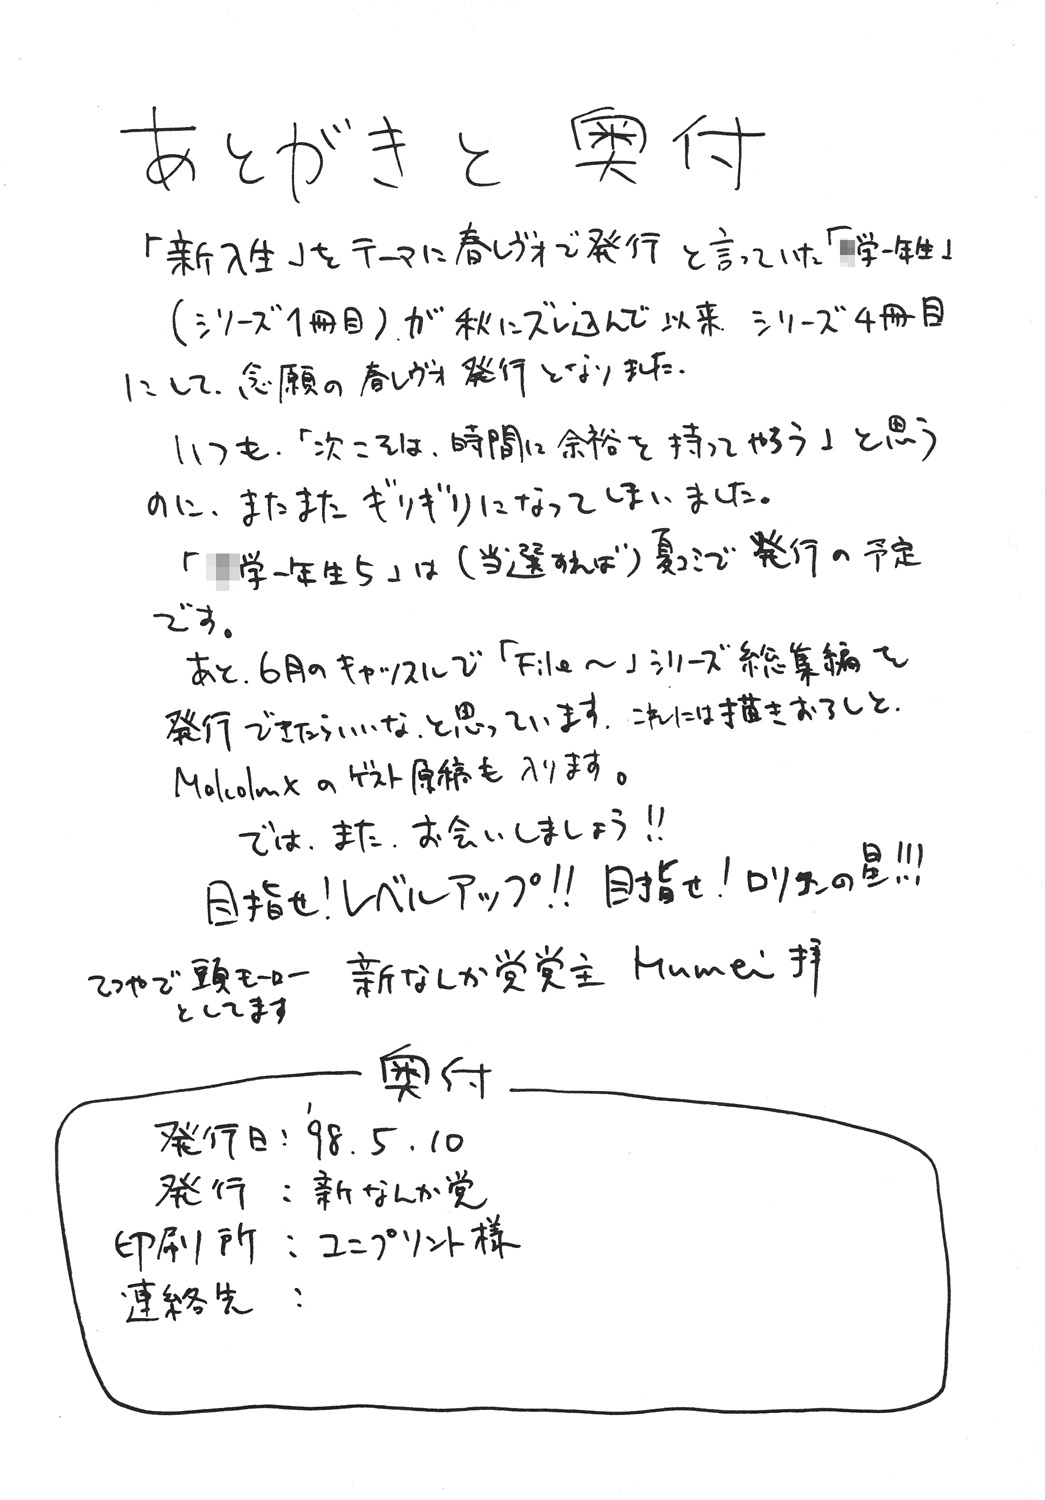 あとがきと 奥付
「新入生」をテーマに春レヴォで発行 と言っていた「学一年生」
(シリーズ1冊目)が 秋にズレ込んで以来、シリーズ4冊目
にして、念願の 春レヴォ 発行となりました。
いつも、「次こそは、時間に余裕を持ってやろう」と思う
のに、またまた ギリギリになってしまいました。
「学一年生5」は(当選すれば)夏コミで 発行の予定
です。
あと、6月のキャッスルで「File〜」シリーズ 総集編を
発行できたらいいな、と思っています。これには描きおろしと、
Molcolmxのゲスト原稿も 入ります。
では、また、お会いしましょう!!
目指せ!レベルアップ!! 目指せ!ロリコンの星!!!
てつやで 頭モーロー
としてます
新なんか党党主 Mumei 拝
奥付
発行日:'98.5.10
発行 : 新なんか党
印刷所 : ユニプリント様
連絡先 :